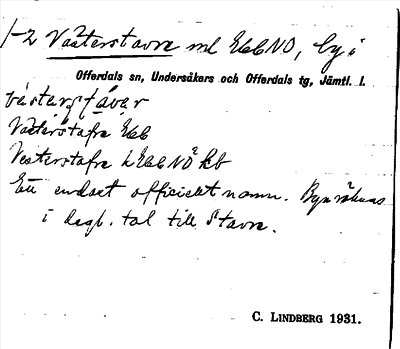 1-2 Västerstavre ml EbbNO, by i
Offerdals sn, Undersåkers och Offerdals tg, Jämtl. l.
västerstáver
Västerstafre Ebb
Vesterstafre EbbNO kb
Ett endast officiellt namn. Byn räknas
i dagl. tal till Stavre.
C. LINDBERG 1931.